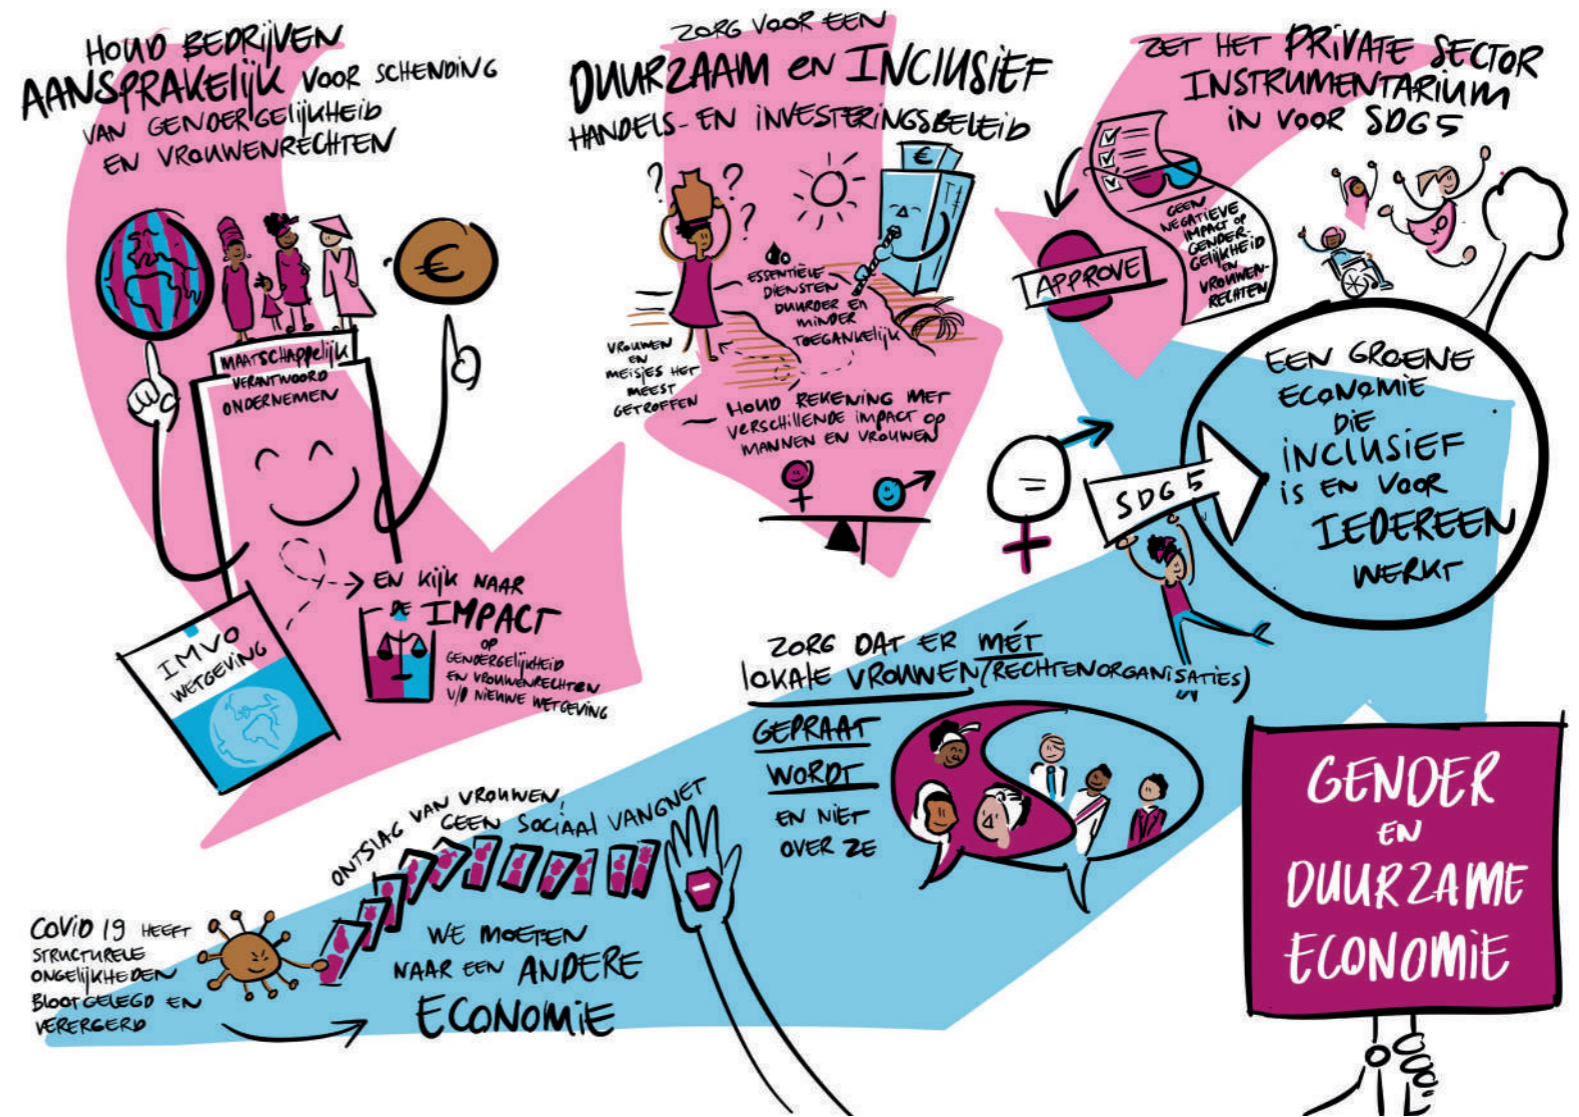 HOUD BEDRIJVEN
AANSPRAKELIJK VOOR SCHENDING
VAN GENDERGELIJKHEID
EN VROUWENRECHTEN
MAATSCHAPPELIJK
VERANTWOORD
ONDERNEMEN
€
IMVO
WETGEVING
EN KIJK NAAR
DE IMPACT
OP
GENDERGELIJKHEID
EN VROUWENRECHTEN
V/D NIEUWE WETGEVING
ZORG VOOR EEN
DUURZAAM EN INCLUSIEF
HANDELS- EN INVESTERINGSBELEID
? ? ?
€
ESSENTIËLE
DIENSTEN
DUURDER EN
MINDER
TOEGANKELIJK
VROUWEN
EN
MEISJES HET
MEEST
GETROFFEN
HOUD REKENING MET
VERSCHILLENDE IMPACT OP
MANNEN EN VROUWEN
ZET HET PRIVATE SECTOR
INSTRUMENTARIUM
IN VOOR SDG5
APPROVE
GEEN
NEGATIEVE
IMPACT OP
GENDER-
GELIJKHEID
EN
VROUWEN-
RECHTEN
SDG 5
EEN GROENE
ECONOMIE
DIE
INCLUSIEF
IS EN VOOR
IEDEREEN
WERKT
ZORG DAT ER MÉT
LOKALE VROUWEN(RECHTENORGANISATIES)
GEPRAAT
WORDT
EN NIET
OVER ZE
ONTSLAG VAN VROUWEN,
GEEN SOCIAAL VANGNET
COVID 19 HEEFT
STRUCTURELE
ONGELIJKHEDEN
BLOOTGELEGD EN
VERERGERD
WE MOETEN
NAAR EEN ANDERE
ECONOMIE
GENDER
EN
DUURZAME
ECONOMIE